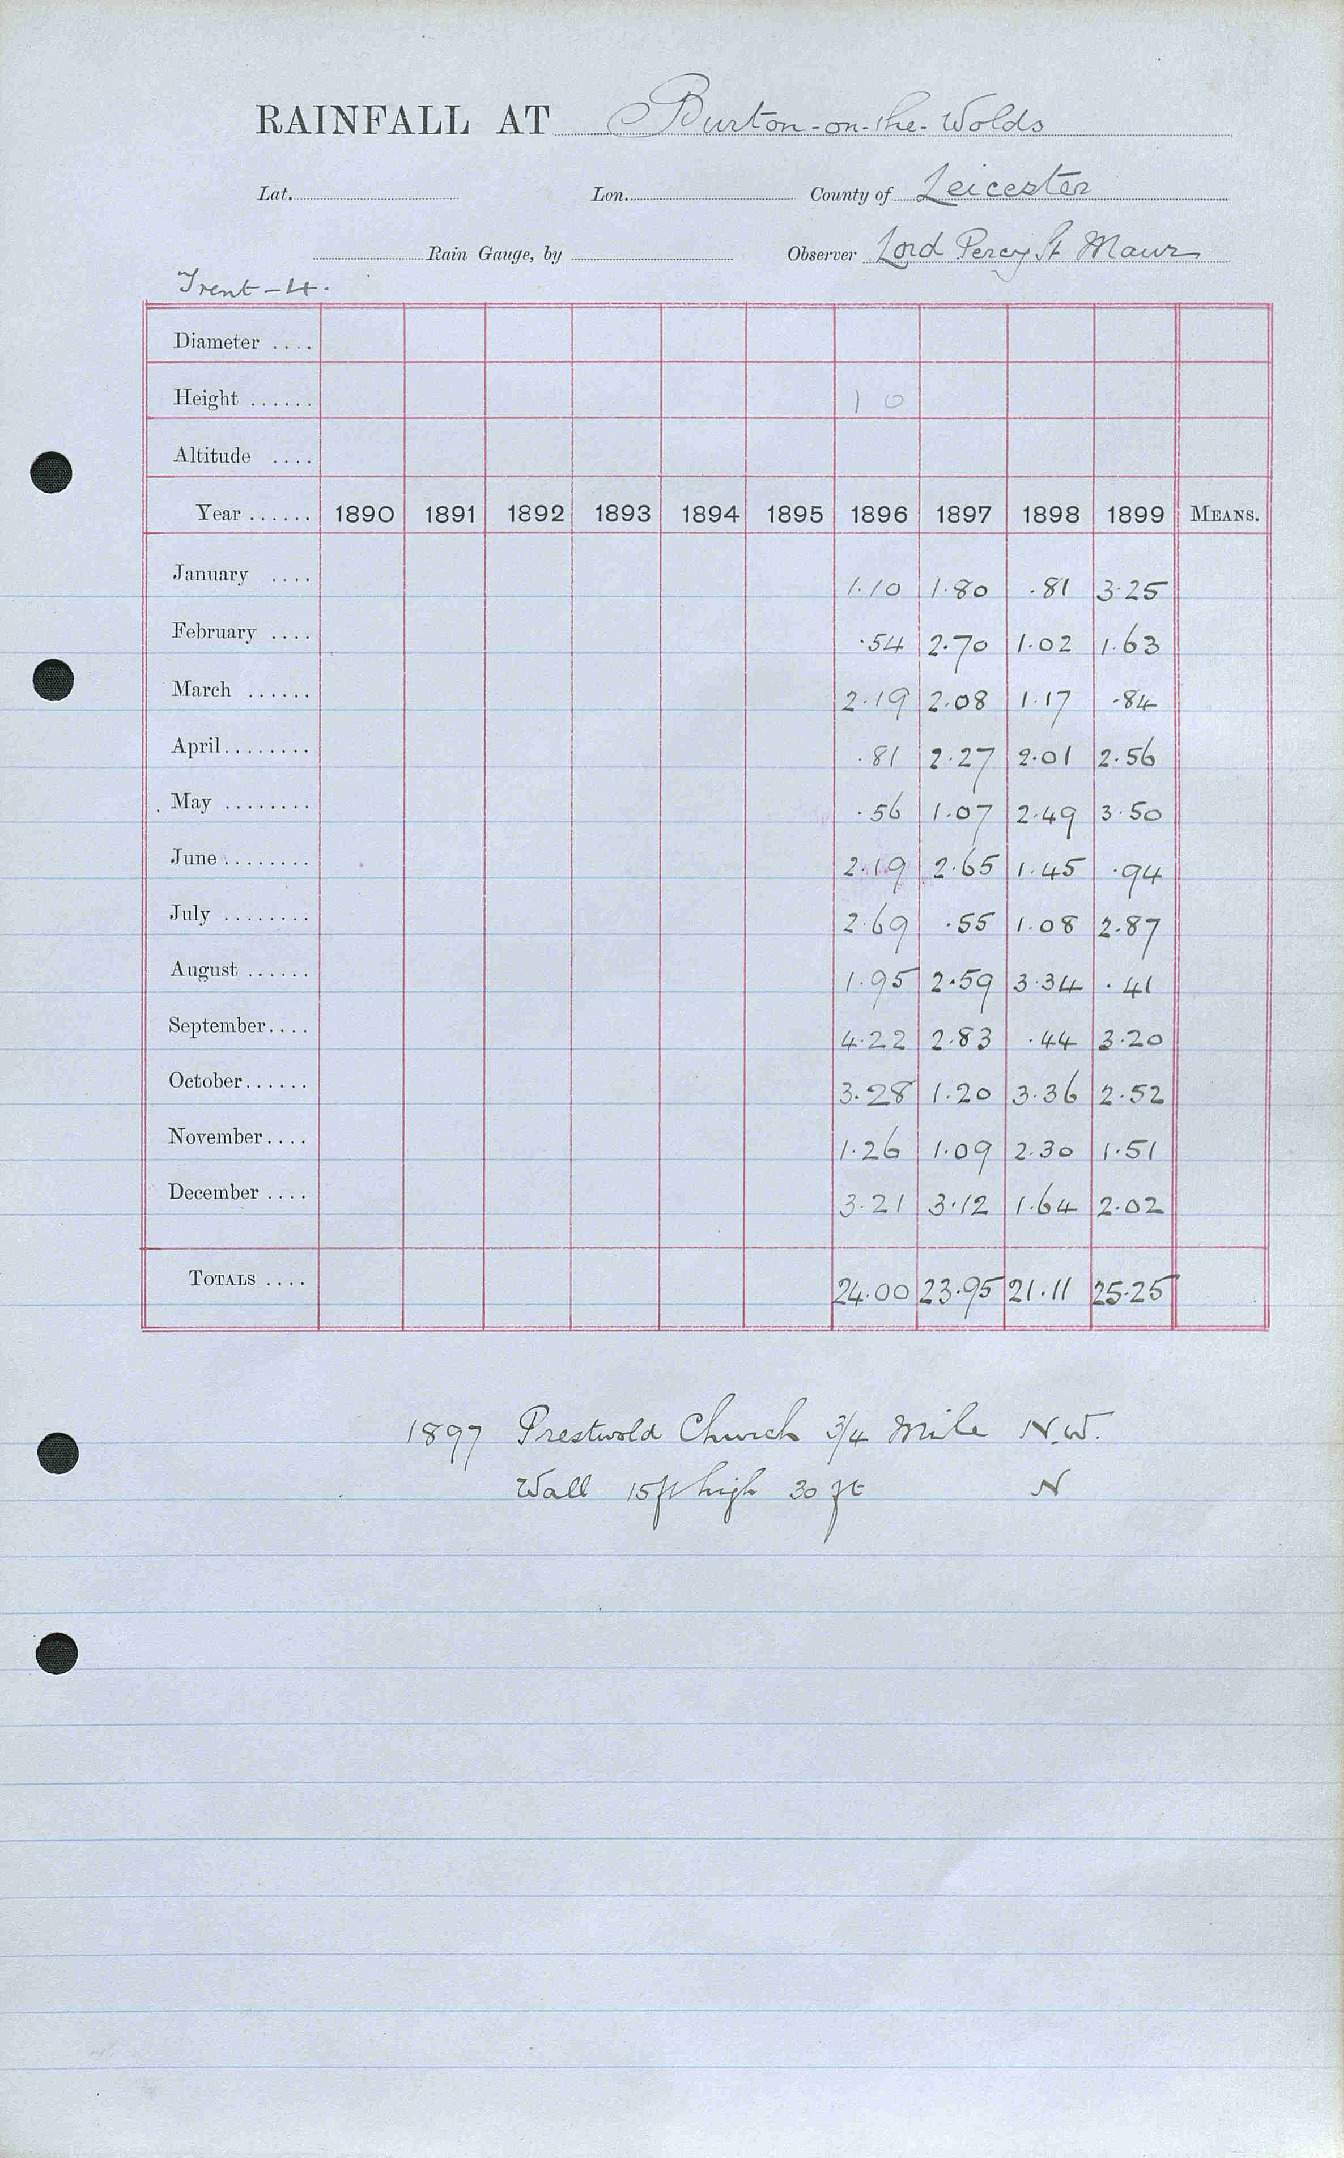 RAINFALL AT Burton-on-the-Wolds
Lat. Lon. County of Leicester
Rain Gauge, by Observer Lord Percy St Maur
Trent-4.
Diameter ....
Height ...... 1 0
Altitude ....
Year ...... 1890 1891 1892 1893 1894 1895 1896 1897 1898 1899 MEANS.
January .... 1.10 1.80 .81 3.25
February .... .54 2.70 1.02 1.63
March ...... 2.19 2.08 1.17 .84
April ........ .81 2.27 2.01 2.56
May ........ .56 1.07 2.49 3.50
June ........ 2.19 2.65 1.45 .94
July ........ 2.69 .55 1.08 2.87
August ...... 1.95 2.59 3.34 .41
September.... 4.22 2.83 .44 3.20
October...... 3.28 1.20 3.36 2.52
November.... 1.26 1.09 2.30 1.51
December .... 3.21 3.12 1.64 2.02
TOTALS .... 24.00 23.95 21.11 25.25
1897 Prestwold Church 3/4 Mile N.W.
Wall 15ft high 30 ft N